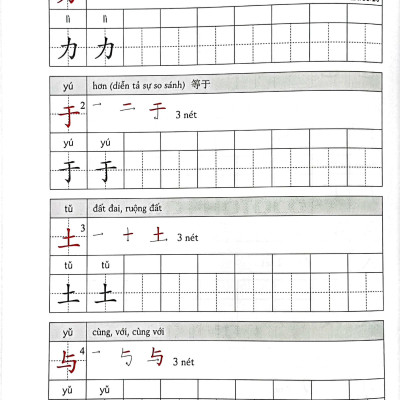 lì lì
力 力
yú hơn (diễn tả sự so sánh) 等于
于 2 一 二 于 3 nét
yú yú
于 于
tǔ đất đai, ruộng đất
土 3 一 十 土 3 nét
tǔ tǔ
土 土
yǔ cùng, với, cùng với
与 4 一 与 与 3 nét
yǔ yǔ